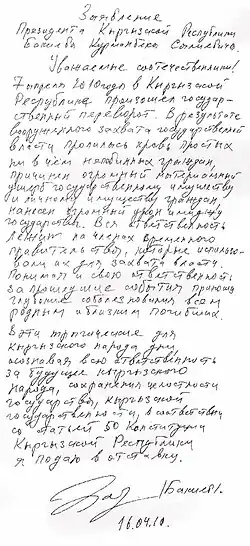 Заявление
Президента Кыргызской Республики
Бакиева Курманбека Салиевича.
Уважаемые соотечественники!
7 апреля 2010 года в Кыргызской
Республике произошел государ-
ственный переворот. В результате
вооруженного захвата государственной
власти пролилась кровь простых
ни в чем неповинных граждан,
причинен огромный материальный
ущерб государственному имуществу
и личному имуществу граждан,
нанесен огромный урон имиджу
государства. Вся ответственность
лежит на членах временного
правительства, которые использо-
вали их для захвата власти.
Понимая и свою ответственность
за прошедшие события приношу
глубокие соболезнования всем
родным и близким погибших.
В эти трагические для
Кыргызского народа дни,
осознавая всю ответственность
за будущее кыргызского
народа, сохранения целостности
государства, Кыргызской
государственности, в соответствии
со статьей 50 Конституции
Кыргызской Республики
я подаю в отставку.
/Бакиев/.
16.04.10.